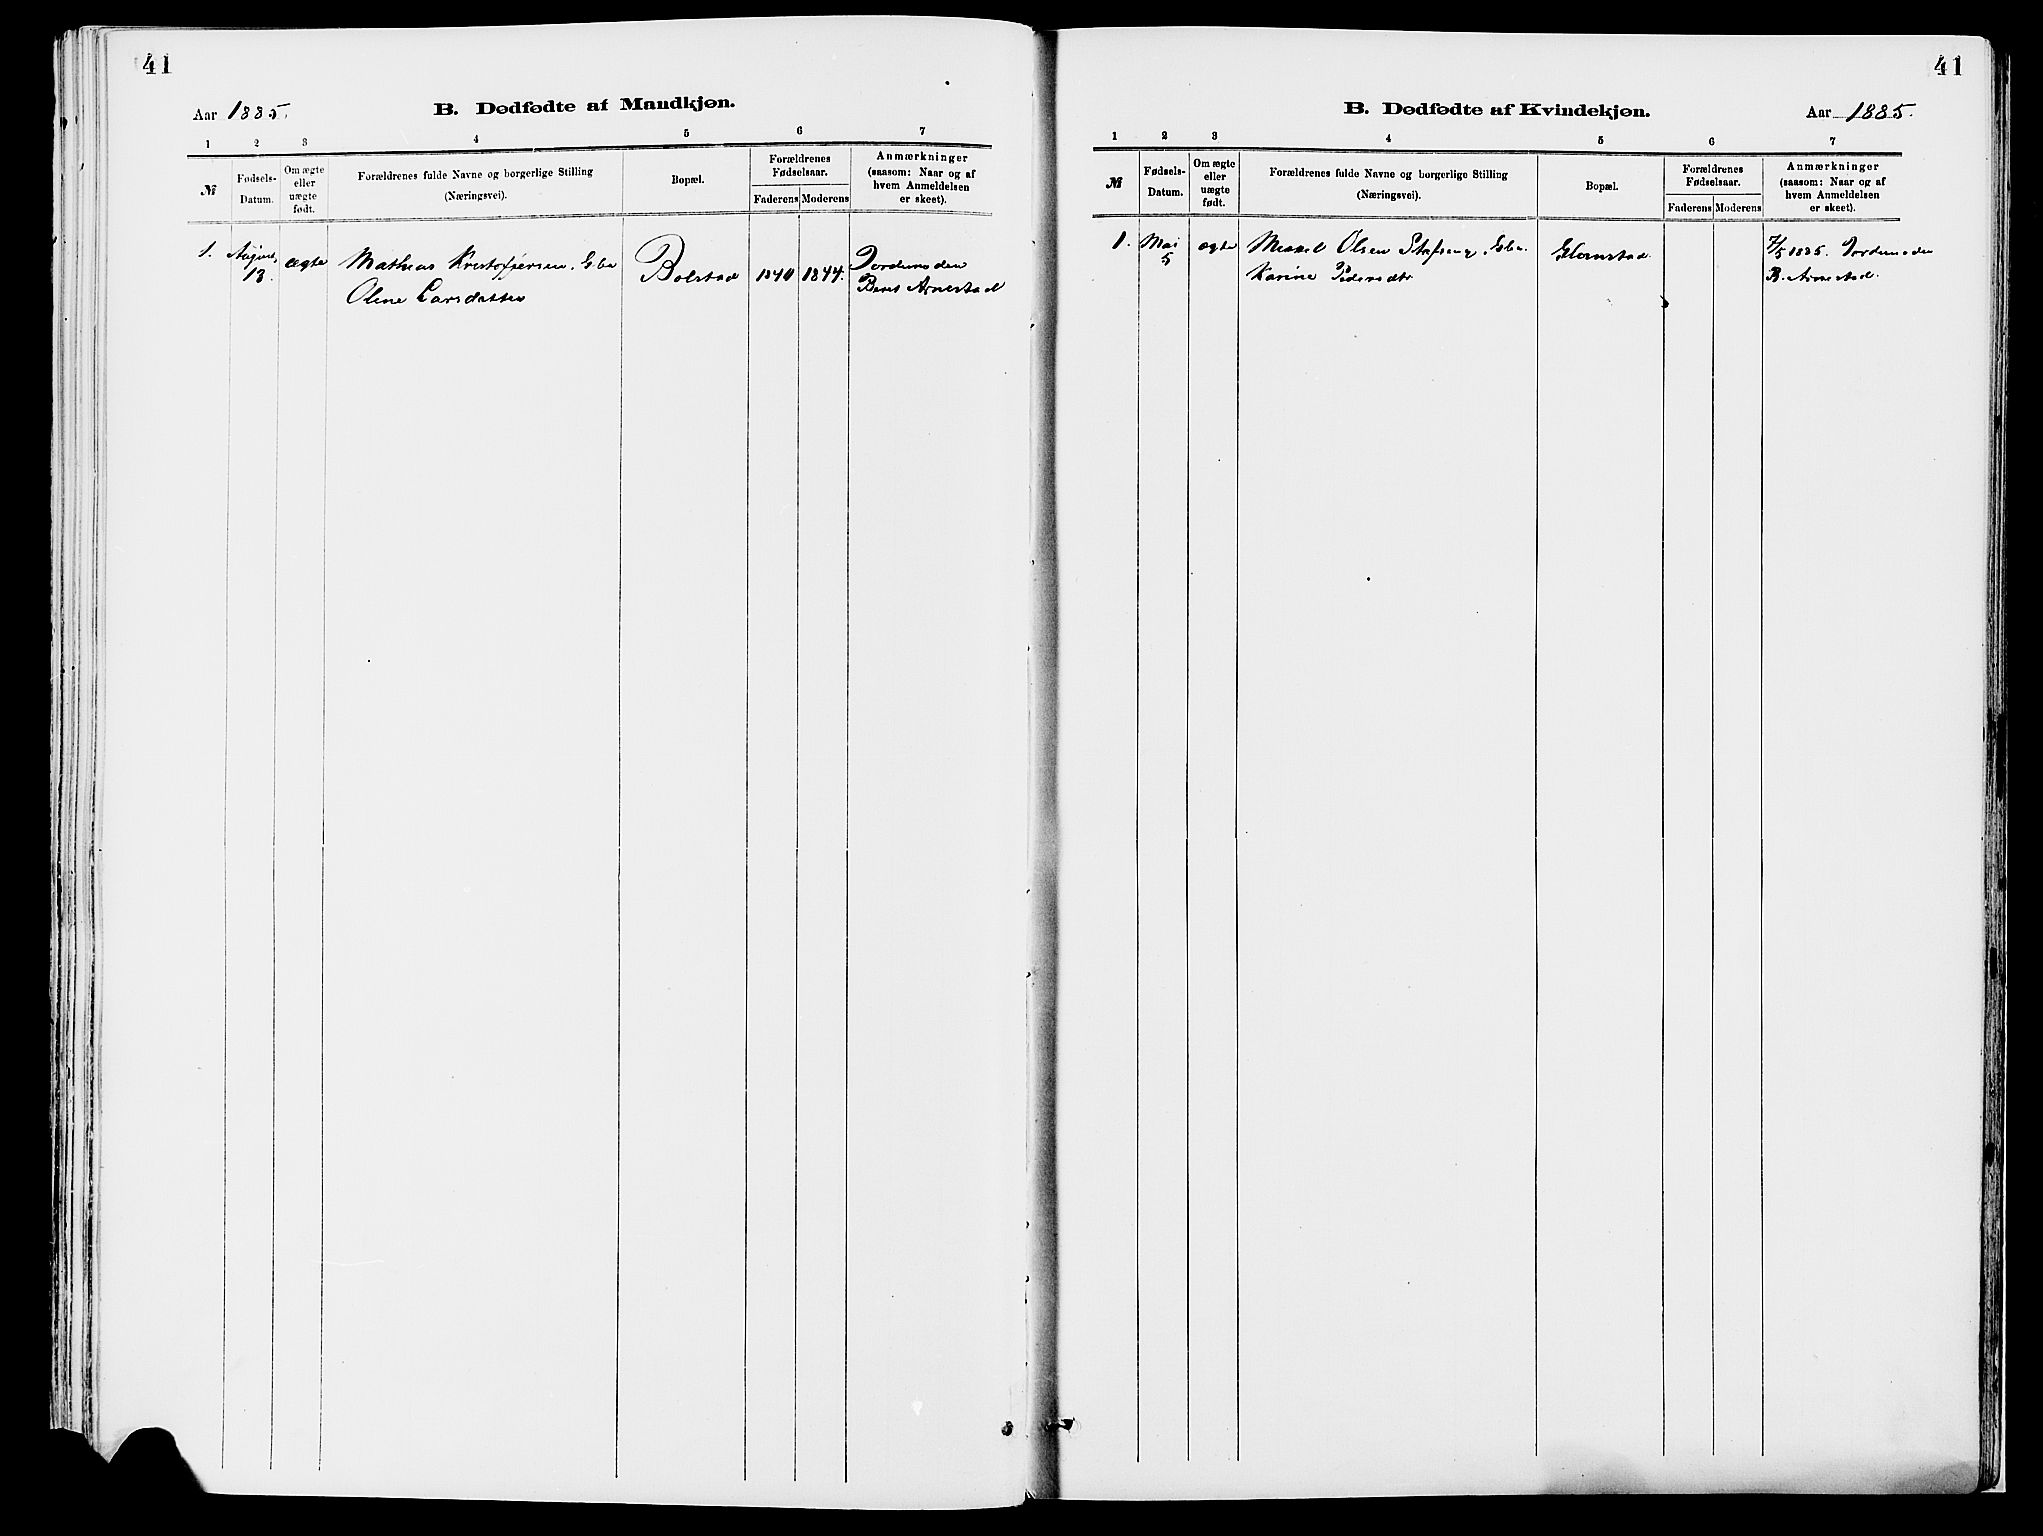 41
Aar 1885.
B. Dødfødte af Mandkjøn.
1 2 3 4 5 6 7
№
Fødsels-
Datum.
Om ægte
eller
uægte
født.
Forældrenes fulde Navne og borgerlige Stilling
(Næringsvei).
Bopæl.
Forældrenes
Fødselsaar.
Faderens Moderens
Anmærkninger
(saasom: Naar og af
hvem Anmeldelsen
er skeet).
1.
August
13.
ægte
Mathias Kristoffersen, Gbr
Oline Larsdatter
Bolstad
1840 1844.
Jordemoder
Beret Arnestad
41
B. Dødfødte af Kvindekjøn.
Aar 1885.
1 2 3 4 5 6 7
№
Fødsels-
Datum.
Om ægte
eller
uægte
født.
Forældrenes fulde Navne og borgerlige Stilling
(Næringsvei).
Bopæl.
Forældrenes
Fødselsaar.
Faderens Moderens
Anmærkninger
(saasom: Naar og af
hvem Anmeldelsen
er skeet).
1.
Mai
5
ægte
Olsen Gbr.
Karine Pedersdtr
7/5 1885. Jordemoder
B. Arnestad.